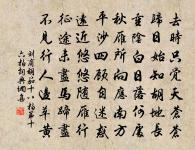 去時只覺天蒼蒼
歸日始知胡地長
重陰白日落何處
秋雁所向應南方
平沙四顧自迷惑
遠近悠悠隨雁行
征途未盡馬蹄盡
不見行人邊草黃
劉商胡笳十八拍第十
六拍詞典網集